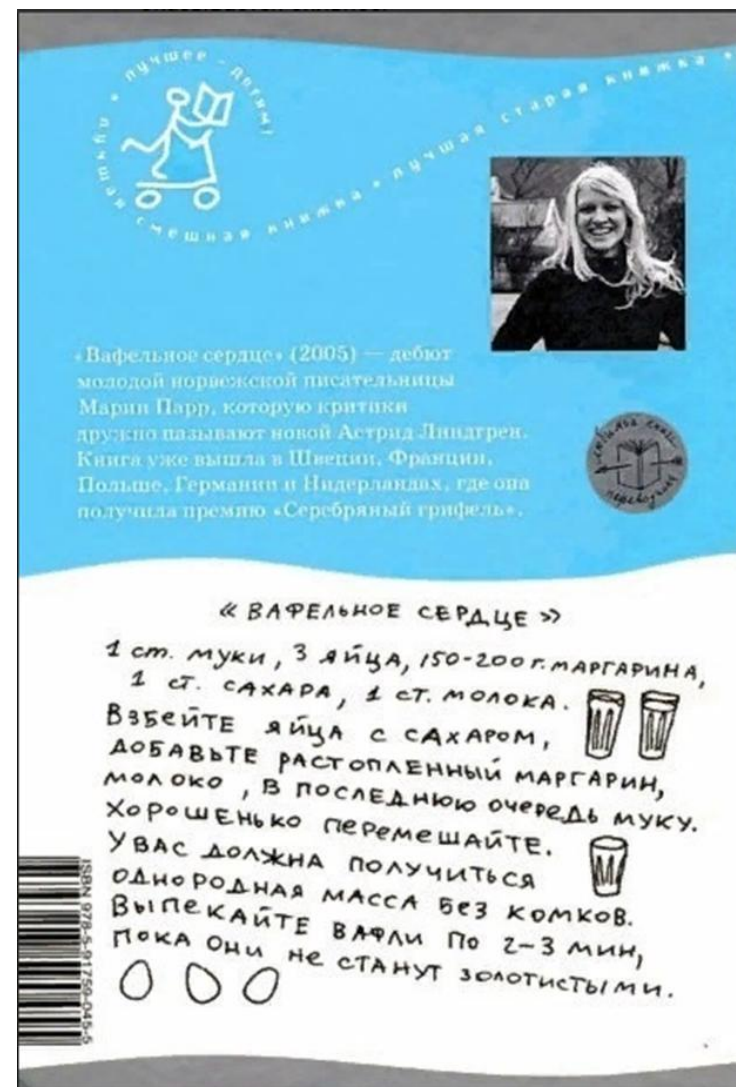 лучшее - детям!
лучшая смешная книжка • лучшая старая книжка •
«Вафельное сердце» (2005) — дебют
молодой норвежской писательницы
Марии Парр, которую критики
дружно называют новой Астрид Линдгрен.
Книга уже вышла в Швеции, Франции,
Польше, Германии и Нидерландах, где она
получила премию «Серебряный грифель».
книги
переводчик
« ВАФЕЛЬНОЕ СЕРДЦЕ »
1 ст. муки, 3 яйца, 150-200г. маргарина,
1 ст. сахара, 1 ст. молока.
Взбейте яйца с сахаром,
добавьте растопленный маргарин,
молоко, в последнюю очередь муку.
Хорошенько перемешайте.
У вас должна получиться
однородная масса без комков.
Выпекайте вафли по 2-3 мин,
пока они не станут золотистыми.
ISBN 978-5-91759-045-5